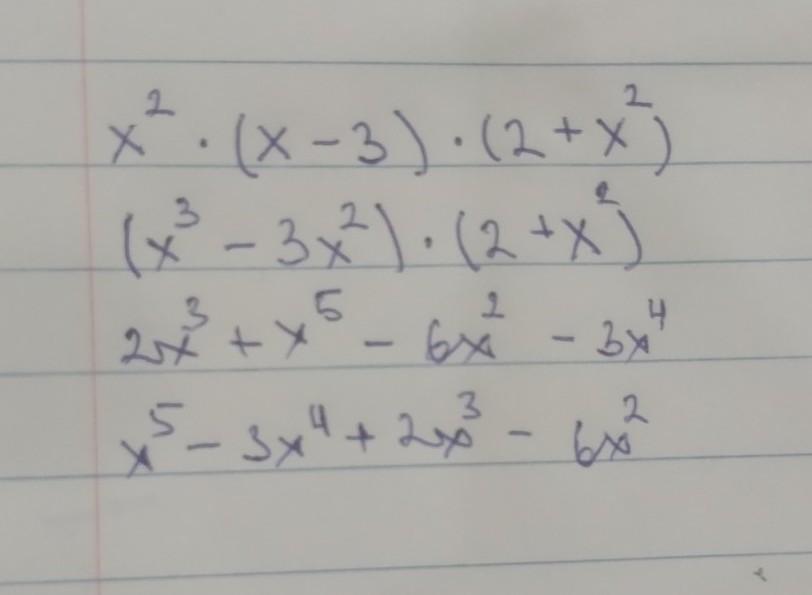 x² · (x - 3) · (2 + x²)
(x³ - 3x²) · (2 + x²)
2x³ + x⁵ - 6x² - 3x⁴
x⁵ - 3x⁴ + 2x³ - 6x²